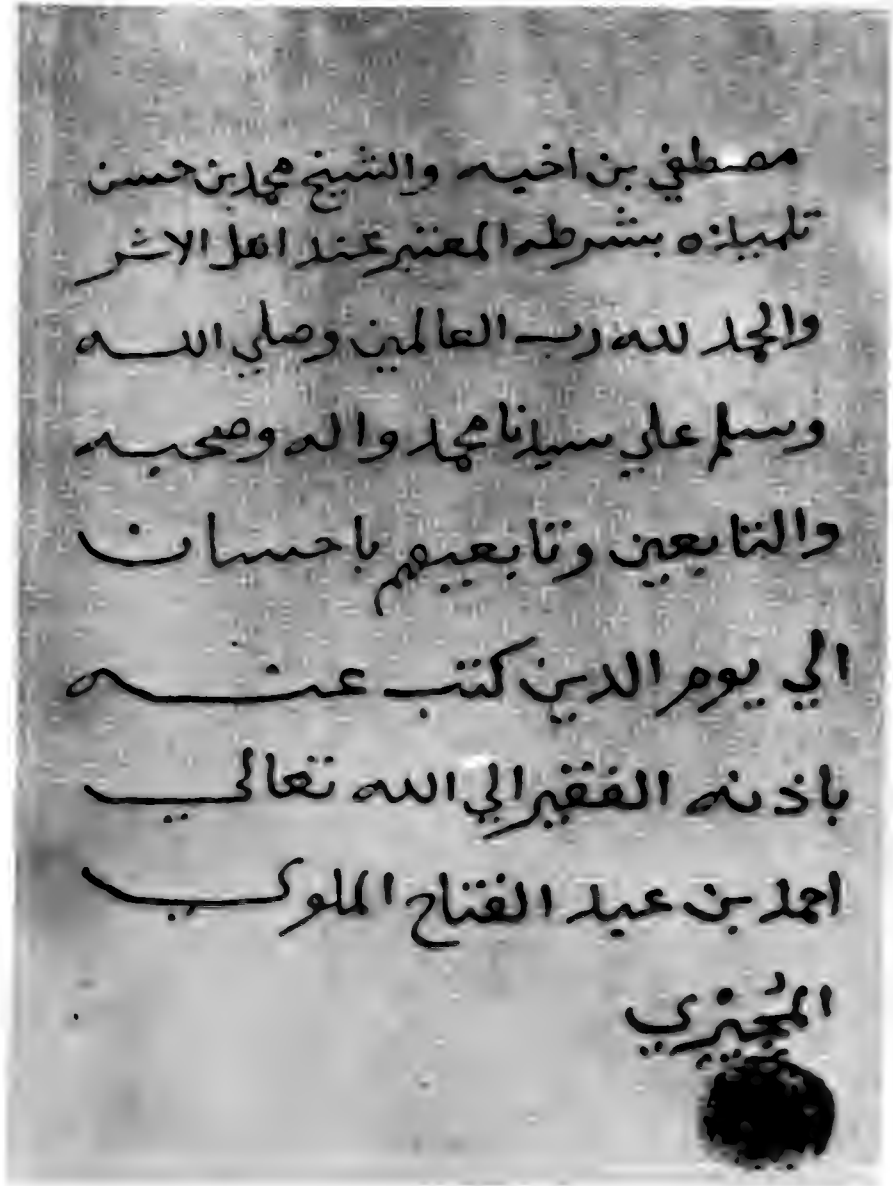 مصطفي بن اخيه والشيخ محمد بن حسن
تلميذه بشرطه المعتبر عند اهل الاثر
والحمد لله رب العالمين وصلي الله
وسلم علي سيدنا محمد واله وصحبه
والتابعين وتابعيهم باحسان
الي يوم الدين كتب عنه
باذنه الفقير الي الله تعالي
احمد بن عبد الفتاح الملوي
المُجيْري